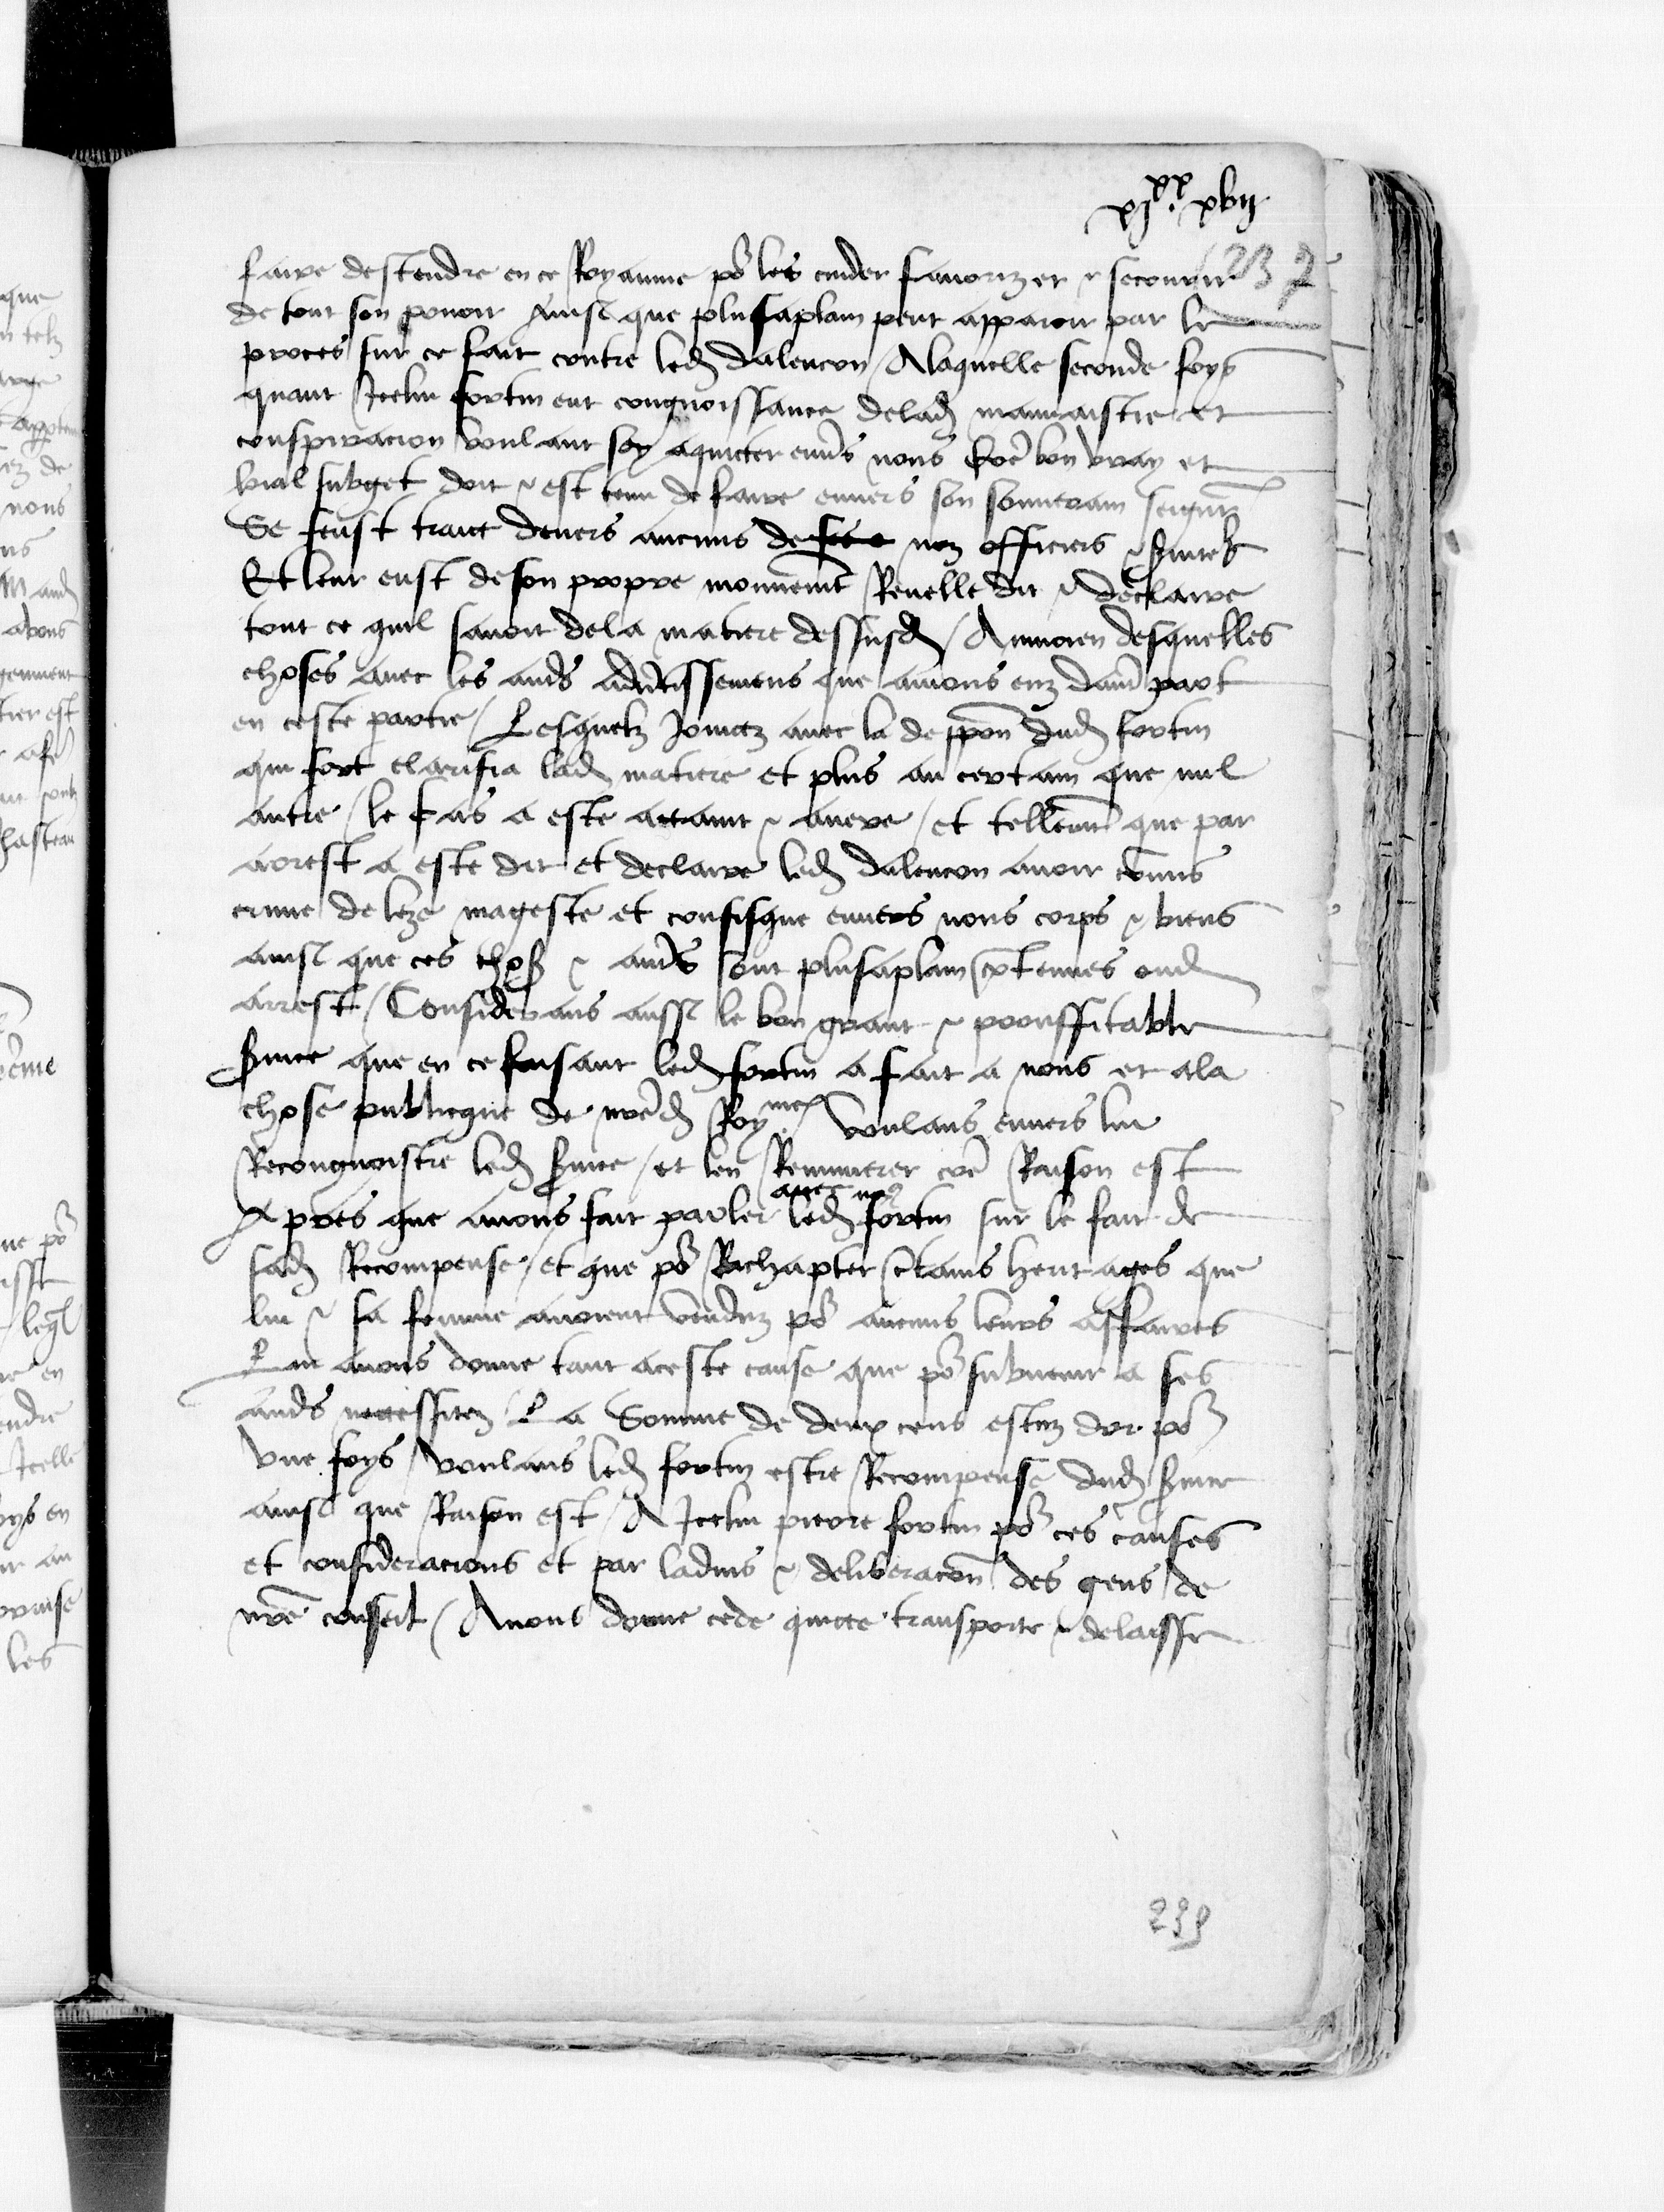 xiˣˣ xvii
237
faire destendre en ce Royaume po' les cuider favorizer & secourir
de tout son povoir Ainsi que plus aplain peut apparoir par le
proces sur ce fait contre led dalencon / Alaquelle seconde foys
quant Icelui fortin eut congnoissance delad mauvaistie et
conspiracion voulant soy aquicter envs nous coe bon vray et
loial subget doit & est tenu de faire envers son souverain seigneur
Se feust traict devers aucuns de ses noz officiers & sviteurs
Et leur eust de son propre mouvemt Revelle dit & declaire
tout ce quil savoit dela matiere dessusd / Aumoien desquelles
choses avec les aucs advtissemens que avions euz dautre part
en ceste partie / Lesquelz Joinctz avec la deposon dud fortin
qui fort clarifia lad matiere et plus au certain que nul
autre / le cas a este attaint & avere / et tellemt que par
arrest a este dit et declaire led dalencon avoir comis
crime de leze mageste et confisque envers nous corps & biens
ainsi que ces choses & autres sont plus aplain contenues oud
arrest / Considerans aussi le bon grant & prouffitable
svice que en ce faisant led fortin a fait a nous et ala
chose publicque de nred Royme voulans envers lui
Recongnoistre led svice / et len Remunerer coe Raison est
Apres que avons fait parler avec nos led fortin sur le fait de
sad Recompense / et que po' Rachapter ctains heritages que
lui & sa femme avoient venduz po' aucuns leurs affaires
Lui avons donne tant aceste cause que po' subvenir a ses
aucs necessitez La Somme de deux cens escuz dor po'
une foys / voulans led fortin estre Recompense dud svice
ainsi que Raison est / A Icelui pierre fortin po' ces causes
et consideracions et par ladvis & deliberacon des gens de
nre conseil / Avons donne cede quicte transporte & delaisse
239